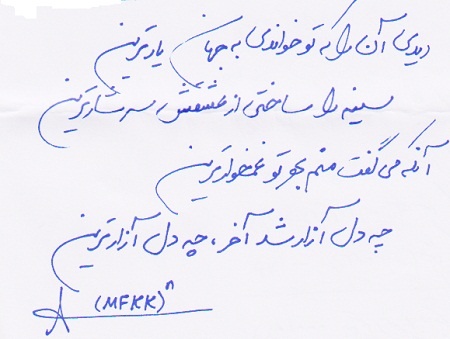 دیدی آن را که تو خواندی به جهان یارترین
سینه را ساختی از عشقش، سرشارترین
آنکه می گفت منم بهر تو غمخوارترین
چه دل آزار شد آخر، چه دل آزارترین
(MFKK)ⁿ